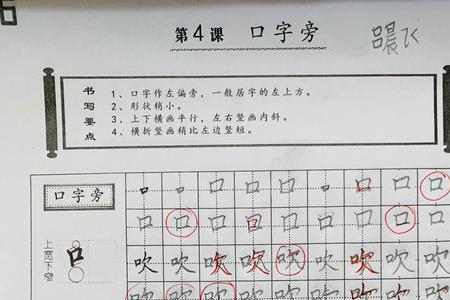 第4课 口字旁
书写要点
1、口字作左偏旁，一般居字的左上方。
2、形状稍小。
3、上下横画平行，左右竖画内斜。
4、横折竖画稍比左边竖短。
口字旁 口 口 口 口 口 口 口 口 口
口 口 口 口 口 口 口 口 口
上宽下窄 口 吹 吹 吹 吹 吹 吹 吹 吹 吹